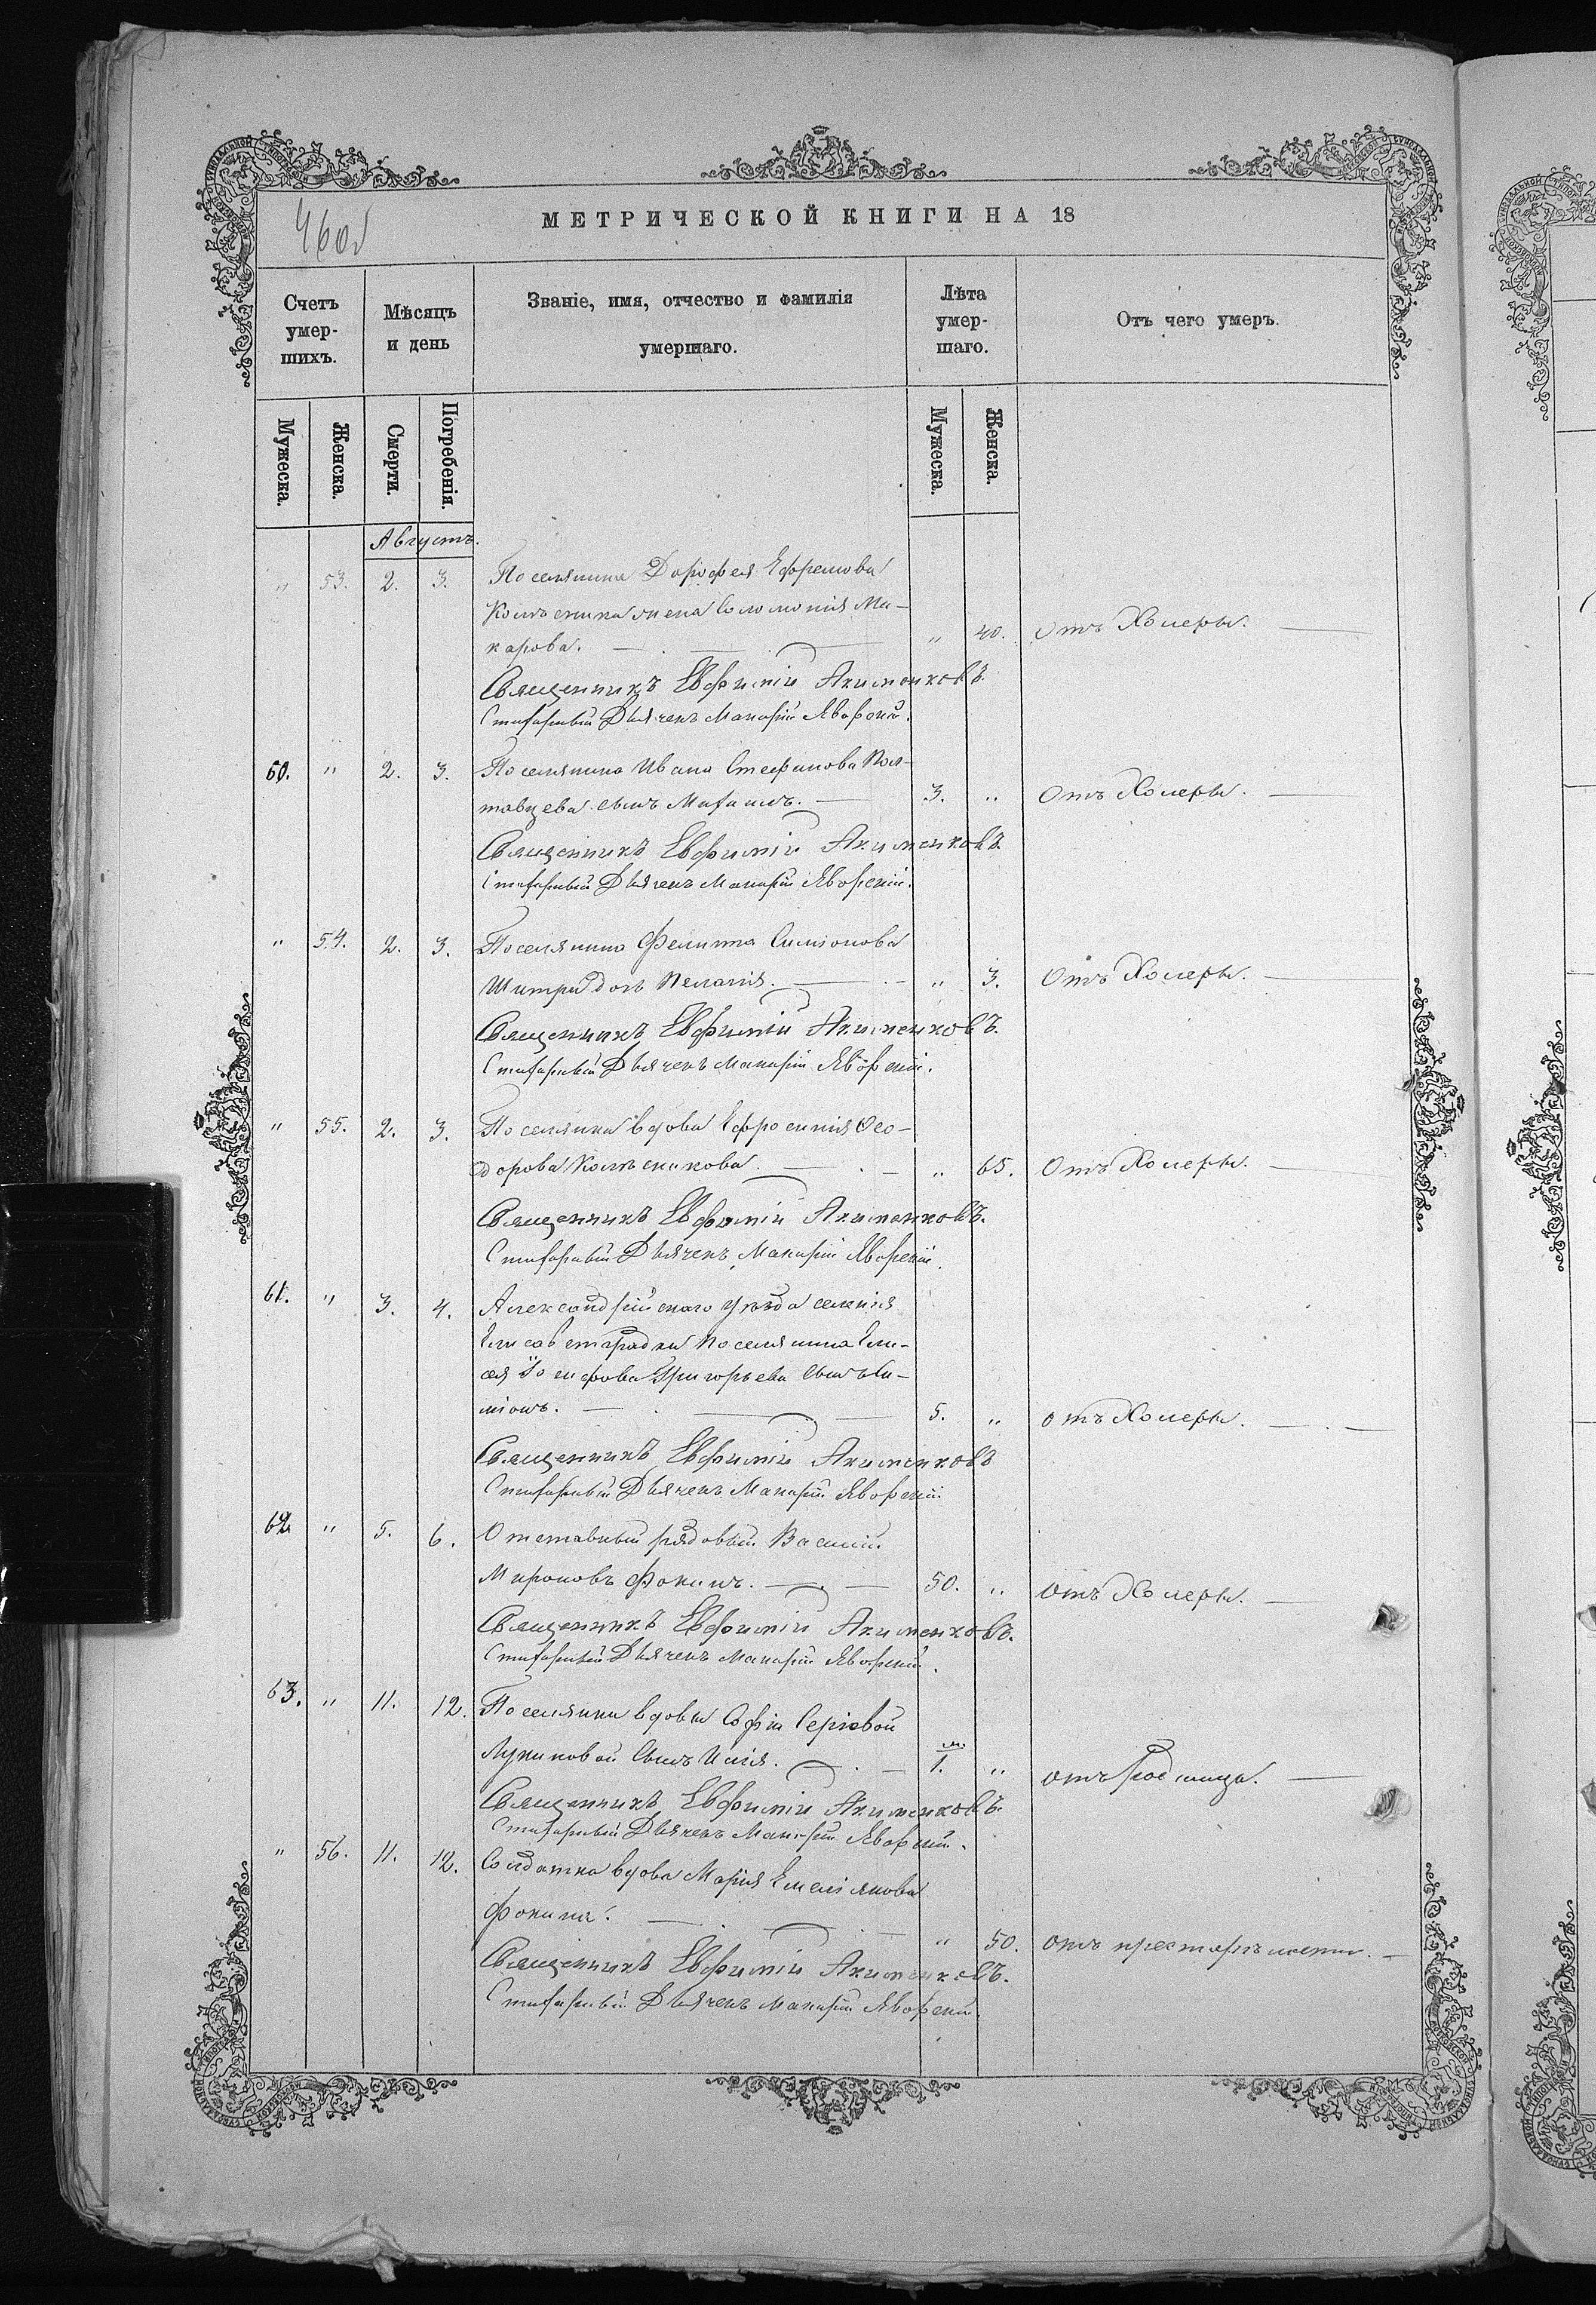 460б
МЕТРИЧЕСКОЙ КНИГИ НА 18
Счетъ умер-шихъ.
Мѣсяцъ и день
Званіе, имя, отчество и фамилія умершаго.
Лѣта умер-шаго.
Отъ чего умеръ.
Мужеска. Женска. Смерти. Погребенія. Мужеска. Женска.
Августъ.
" 53. 2. 3. Поселянина Дорофея Ефремова
Колѣсника жена Соломонія Ма-
карова. " 40. Отъ Холеры.
Священникъ Евфимій Акименковъ
Стихарный Дьячекъ Макарій Яворскій.
60. " 2. 3. Поселянина Ивана Стефанова Пол-
тавцева сынъ Михаилъ. 3. " Отъ Холеры.
Священникъ Евфимій Акименковъ
Стихарный Дьячекъ Макарій Яворскій.
" 54. 2. 3. Поселянина Филиппа Симіонова
дочь Пелагія. " 3. Отъ Холеры.
Священникъ Евфимій Акименковъ.
Стихарный Дьячекъ Макарій Яворскій.
" 55. 2. 3. Поселянка вдова Ефросинія Ѳео-
дорова Колѣсникова. " 65. Отъ Холеры.
Священникъ Евфимій Акименковъ.
Стихарный Дьячекъ Макарій Яворскій.
61. " 3. 4. Александрійскаго уѣзда селенія
Елисаветградки поселянина Ели-
сея Іосифова Григорьева сынъ Си-
міонъ. 5. " отъ Холеры.
Священникъ Евфимій Акименковъ
Стихарный Дьячекъ Макарій Яворскій.
62. " 5. 6. Отставный рядовый Василій
Мироновъ Фокинъ. 50. " отъ Холеры.
Священникъ Евфимій Акименковъ.
Стихарный Дьячекъ Макарій Яворскій.
63. " 11. 12. Поселянки вдовы Софіи Сергіевой
сынъ Илія. м. 1. " отъ родимца.
Священникъ Евфимій Акименковъ.
Стихарный Дьячекъ Макарій Яворскій.
" 56. 11. 12. Солдатка вдова Марія Емеліянова
Фокина. " 50. отъ престарѣлости.
Священникъ Евфимій Акименковъ.
Стихарный Дьячекъ Макарій Яворскій.